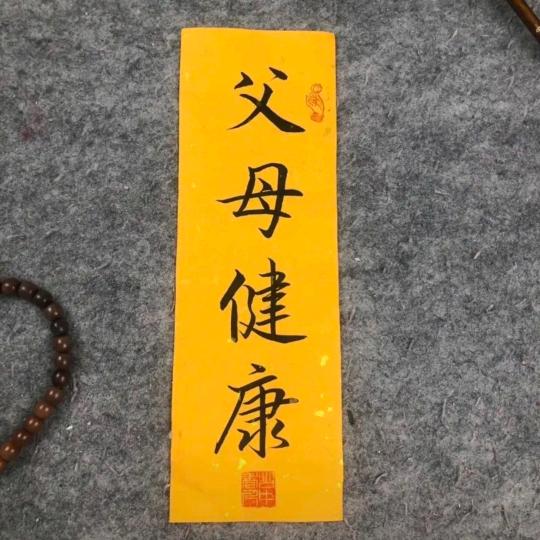 父母健康